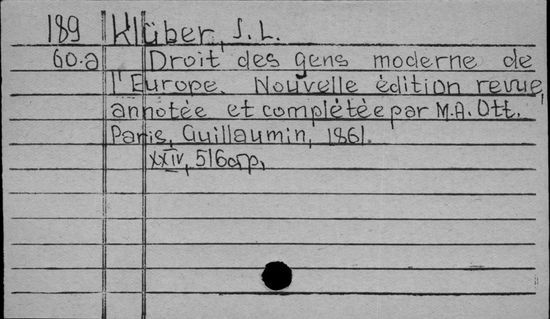 189 Klüber, J. L.
60.a Droit des gens moderne de
l'Europe. Nouvelle édition revue,
annotée et complétée par M.A. Ott.
Paris, Guillaumin, 1861.
XXIV, 516